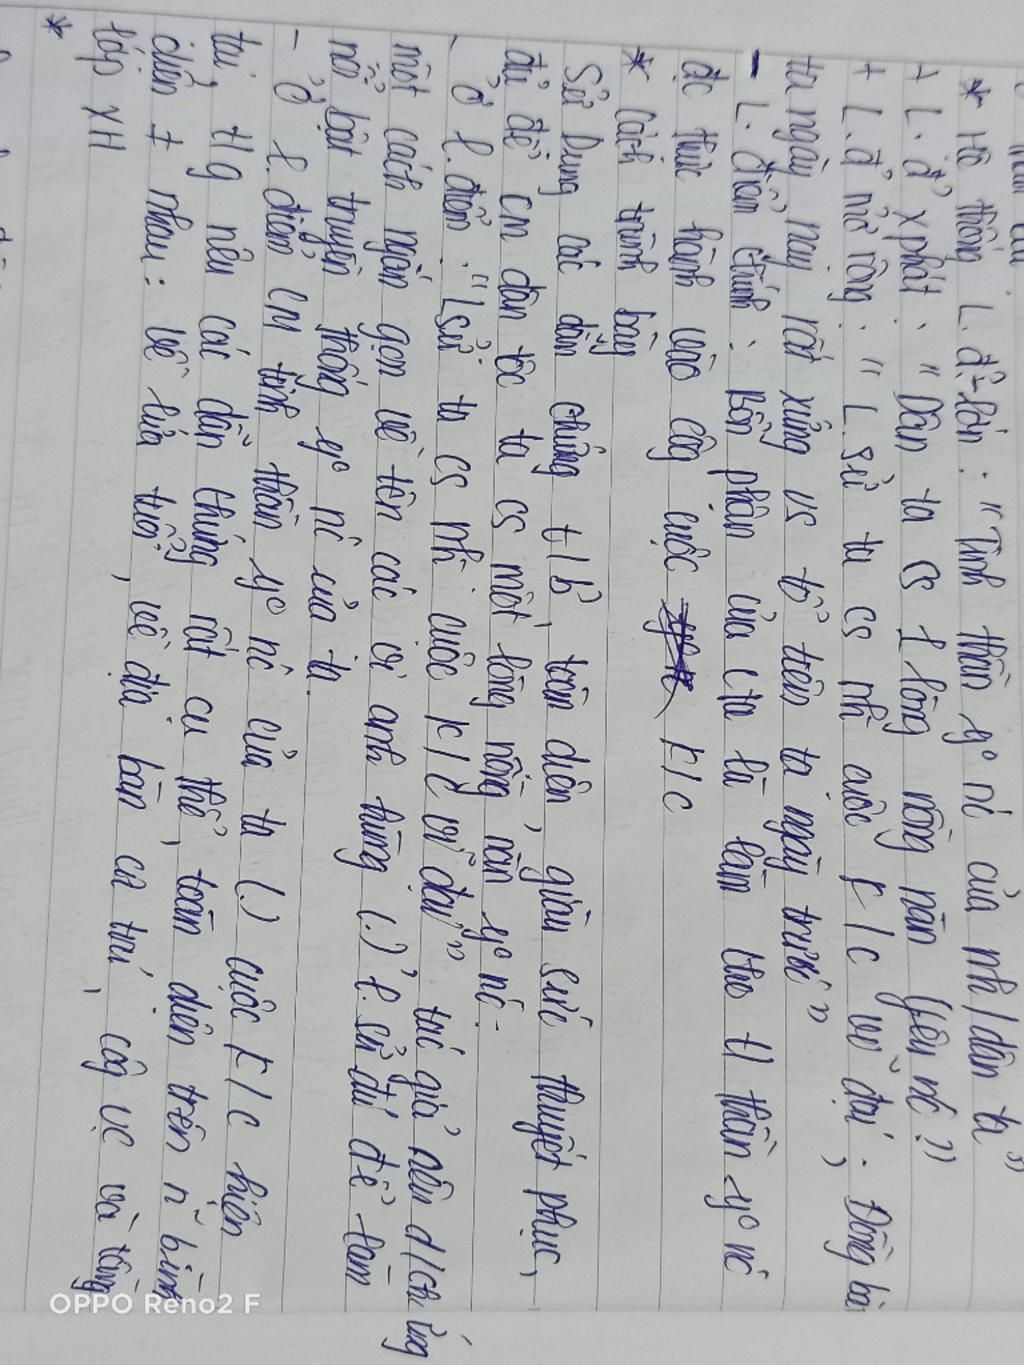 * Hệ thống L.đ²-lớn: "Tinh thần y° nc của nh/dân ta"
+ L.đ² xphát: "Dân ta cs 1 lòng nồng nàn yêu nc"
+ L.đ² mở rộng: "L.sử ta cs nh̀ cuộc k/c vĩ đại; Đồng bào
ta ngày nay rất xứng vs tổ tiên ta ngày trước"
- L.điểm chính: Bổn phận của cta là làm cho t/thần y° nc
đc thực hành vào côg cuộc k/c
* Cách trình bày
Sử Dụng các dẫn chứng t/b', toàn diện, giàu sức thuyết phục,
đủ để cm dân tộc ta cs một lòng nồng nàn y° nc.
- Ở l.điểm: "Lsử ta cs nh̀ cuộc k/c vĩ đại" tác giả nêu d/chứng
một cách ngắn gọn về tên các vị anh hùng (.) l.sử đủ để làm
nổi bật truyền thống y° nc của ta.
- Ở l.điểm CM tinh thần y° nc của ta (.) cuộc k/c hiện
tại, t/g nêu các dẫn chứng rất cụ thể, toàn diện trên n~ bình
diện ≠ nhau: về lứa tuổi, về địa bàn cư trú, côg vc và tầng
lớp XH
*
OPPO Reno2 F